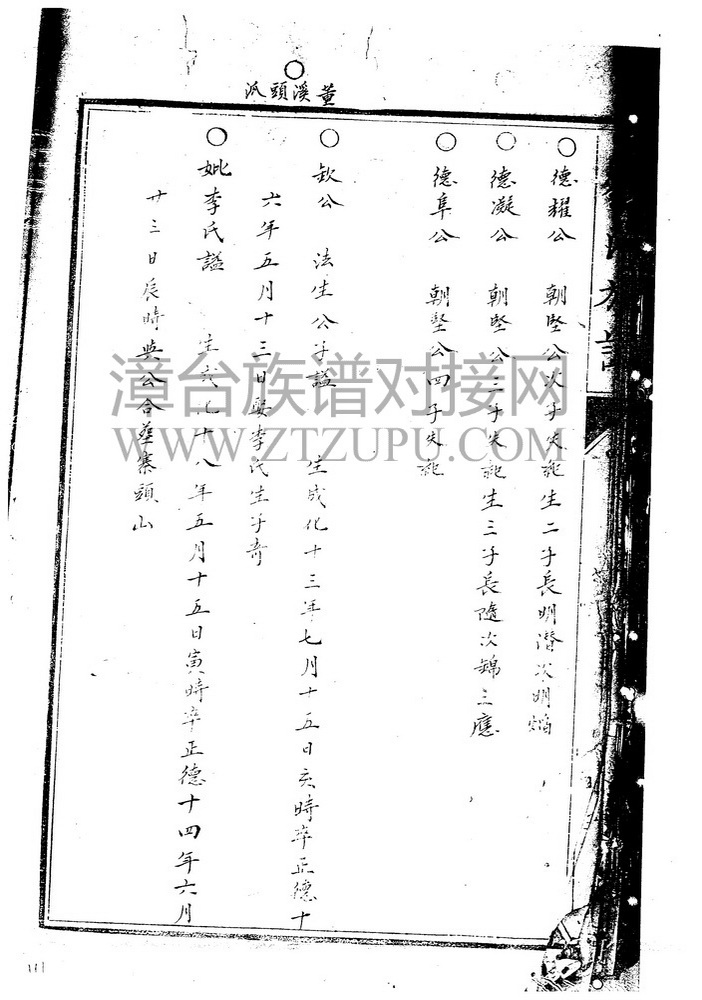 董溪頭派
德耀公 朝堅公次子失紀生二子長明潛次明焰
德凝公 朝堅公三子失紀生三子長隨次錦三應
德阜公 朝堅公四子失紀
欽公 法生公子謚 生成化十三年七月十五日亥時卒正德十
六年五月十三日娶李氏生子奇
妣李氏謚 生成化十八年五月十五日寅時卒正德十四年六月
廿三日辰時與公合葬寨頭山
漳台族谱对接网
WWW.ZTZUPU.COM